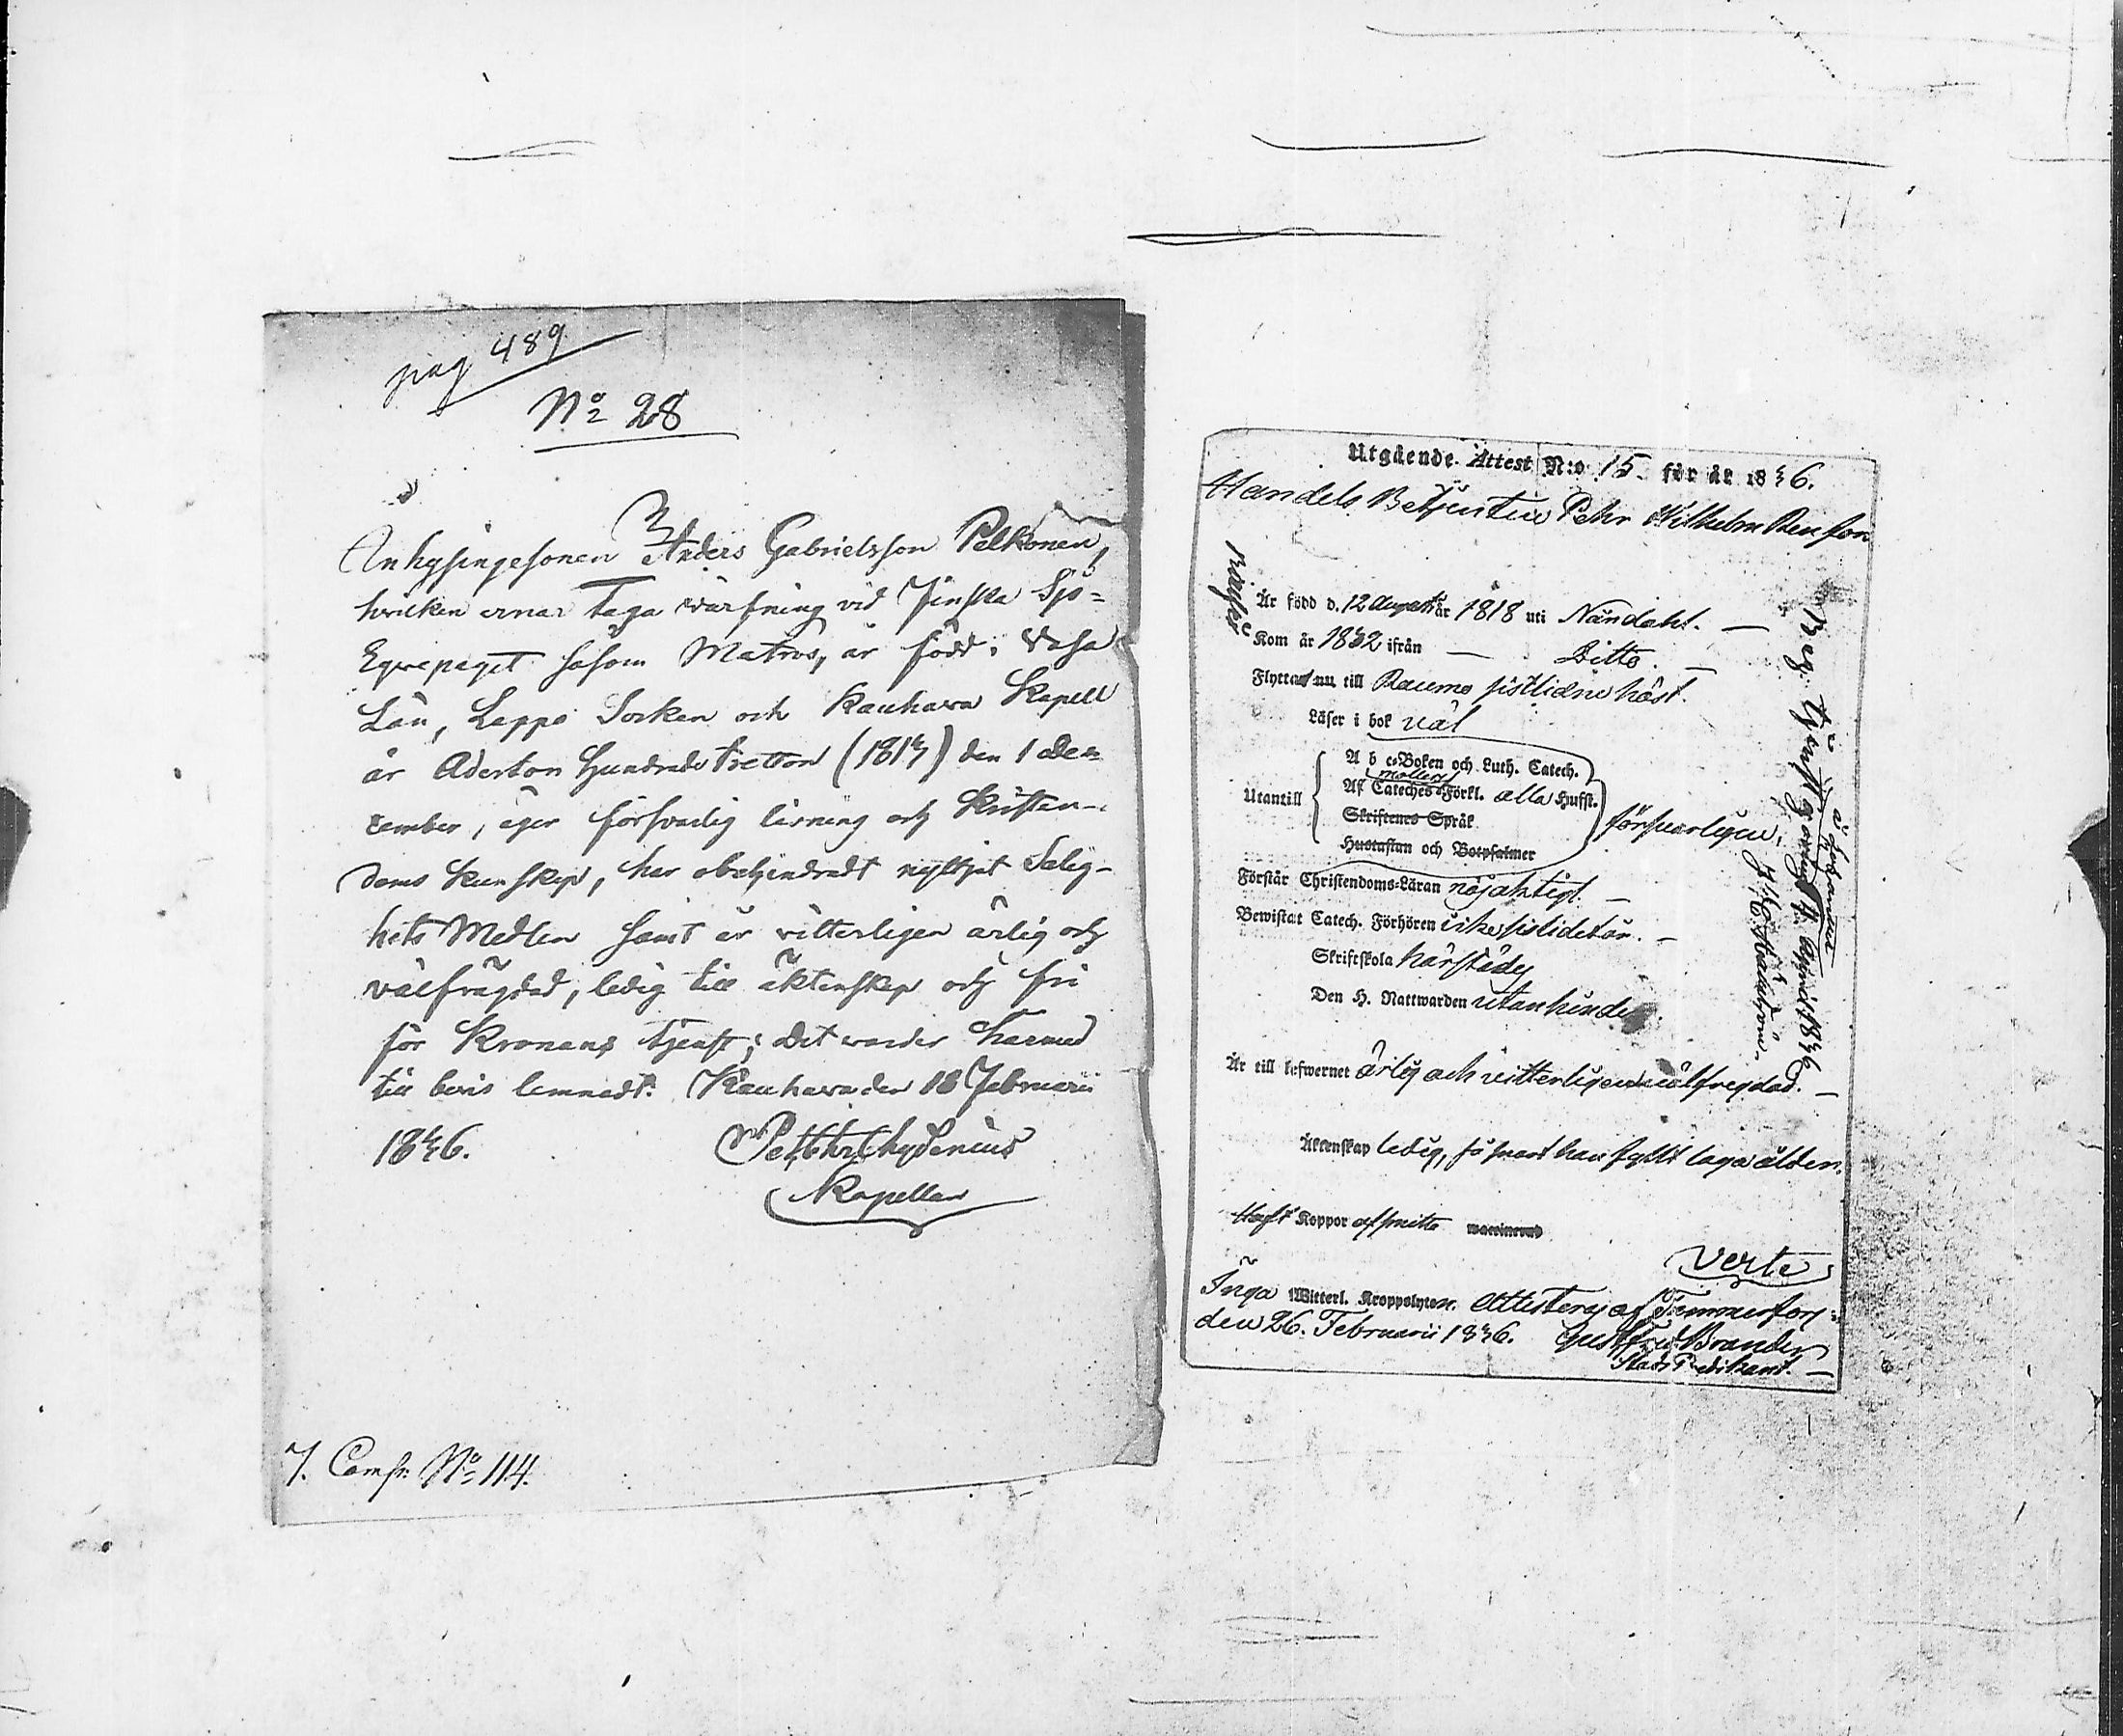 pag 489
No 28
Anhysingesonen Anders Gabrielsson Pelkonen,
hvilken ernar taga värfning vid Finska Sjö-
Equipaget såsom Matros, är född i Vasa
Län, Lappo Socken och Kauhava Kapell
år Aderton Hundrade tretton (1813) den 1 De-
cember, äger försvarlig läsning och Kristen-
doms kunskap, har obehindradt nyttjat Salig-
hets Medlen samt är vitterligen ärlig och
välfrägdad, ledig till äktenskap och fri
för Kronans tjenst; det varder härmed
till bevis lemnadt. Kauhava den 18 Februarii
1846. Chydenius
Kapellan
Comf. No 114.
Utgående Attest N:o 15 för år 1846.
Handels Betjenten Pehr Wilhelm
Är född d. 12 Augusti år 1818 uti Nändahl.
Kom år 1832 ifrån Ditto.
Flyttad nu till Raumo sistlidne höst.
Läser i bok väl
A b c-Boken och Luth. Catech.
Utantill Af Cateches Förkl. alla Hufst.
Skriftenes Språk försvarligen,
Hustaflan och Botpsalmer
Förstår Christendoms-Läran nöjaktigt.
Bewistat Catech. Förhören icke sistlidet år.
Skriftskola härstädes
Den H. Nattwarden utan hinder.
Är till lefwernet ärlig och vitterligen välfregdad.
Äktenskap ledig, så snart han fyllt laga ålder.
Haft Koppor
Verte
Inga Witterl. Kroppslyten. Attesteras af Tammerfors
den 26. Februarii 1846. Brander
Stads Predikant.